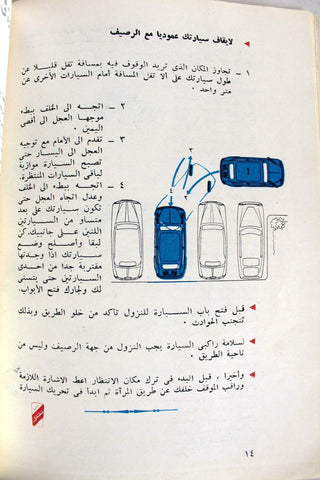 لايقاف سيارتك عموديا مع الرصيف
١ – تجاوز المكان الذي تريد الوقوف فيه بمسافة تقل قليلا عن
طول سيارتك على ألا تقل المسافة أمام السيارات الأخرى عن
متر واحد .
٢ – اتجه الى الخلف ببطء
موجها العجل الى أقصى
اليمين .
٣ – تقدم الى الأمام مع توجيه
العجل الى اليسار حتى
تصبح السيارة موازية
لباقى السيارات المنتظرة.
٤ – اتجه ببطء الى الخلف
وعدل اتجاه العجل حتى
تكون سيارتك على بعد
متساو من السيارتين
اللتين على جانبيك. كن
لبقا وأصلح وضع
سيارتك اذا وجدتها
مقتربة جدا من احدى
السيارتين حتى يتسنى
لك ولجارك فتح الأبواب.
٢
٣
١
٤
قبل فتح باب السيارة للنزول تأكد من خلو الطريق وبذلك
تتجنب الحوادث .
لسلامة راكبى السيارة يجب النزول من جهة الرصيف وليس من
ناحية الطريق .
وأخيرا ، قبل البدء فى ترك مكان الانتظار اعط الاشارة اللازمة
وراقب الموقف خلفك عن طريق المرآة ثم ابدأ فى تحريك السيارة
١٤